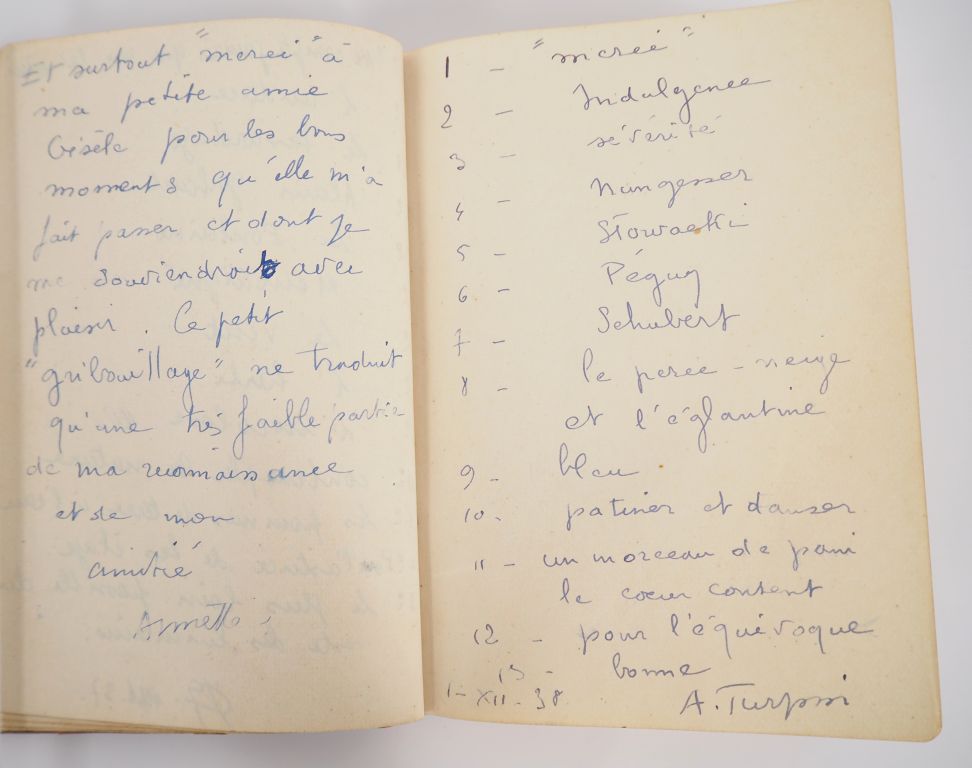 Et surtout "merci" à
ma petite amie
Gisèle pour les bons
moments qu'elle m'a
fait passer et dont je
me souviendrai avec
plaisir. Ce petit
"gribouillage" ne traduit
qu'une très faible partie
de ma reconnaissance
et de mon
amitié
Annette
1 - "merci"
2 - Indulgence
3 - sévérité
4 - Nungesser
5 - Słowacki
6 - Péguy
7 - Schubert
8 - le perce-neige
et l'églantine
9 - bleu
10 - patiner et danser
11 - un morceau de pain
le coeur content
12 - pour l'équivoque
13 - bonne
1-XII-38 A. Turpin